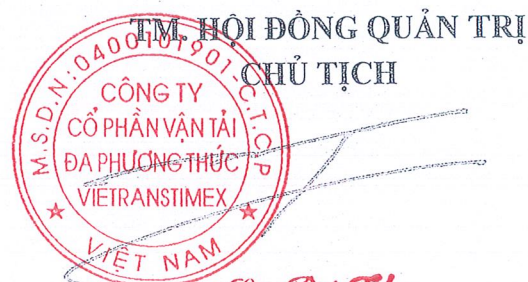 TM. HỘI ĐỒNG QUẢN TRỊ
CHỦ TỊCH
M.S.D.N:0400101901-C.T.C.P
CÔNG TY
CỔ PHẦN VẬN TẢI
ĐA PHƯƠNG THỨC
VIETRANSTIMEX
VIỆT NAM